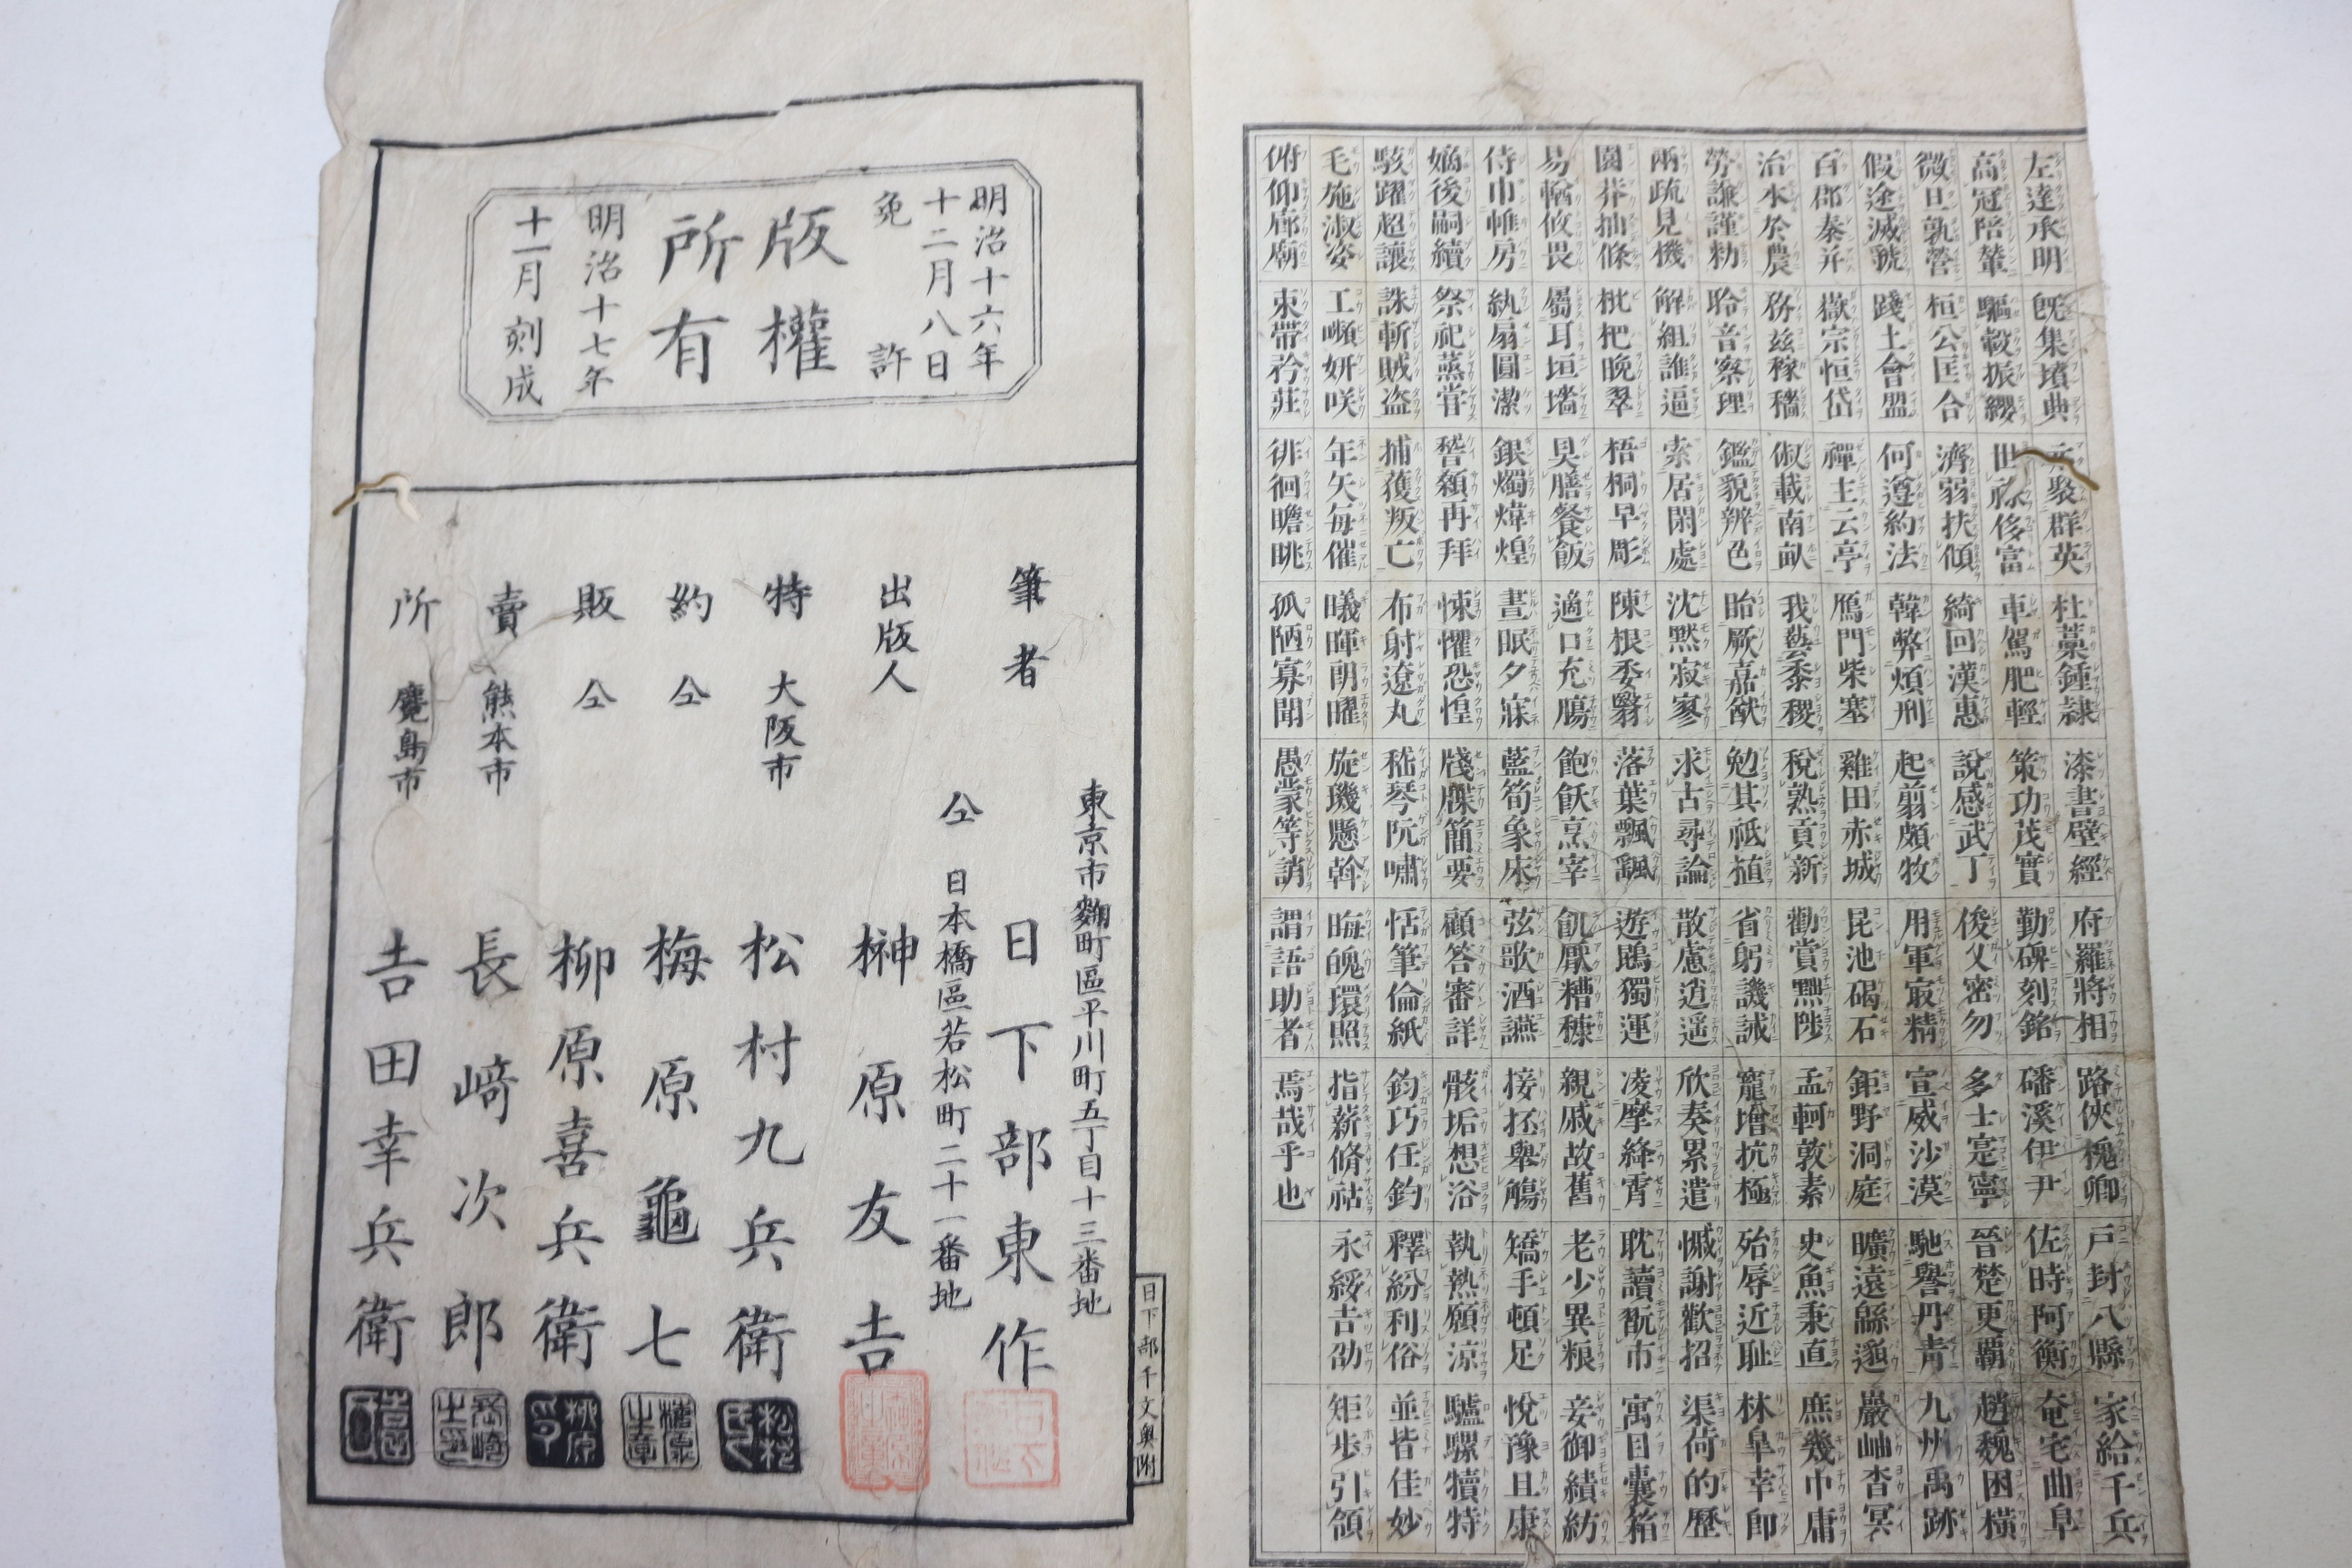 左達承明 既集墳典 亦聚群英 杜藁鍾隷 漆書壁經 府羅將相 路俠槐卿 戸封八縣 家給千兵
高冠陪輦 驅轂振纓 世祿侈富 車駕肥輕 策功茂實 勒碑刻銘 磻溪伊尹 佐時阿衡 奄宅曲阜
微旦孰營 桓公匡合 濟弱扶傾 綺回漢惠 說感武丁 俊乂密勿 多士寔寧 晉楚更霸 趙魏困横
假途滅虢 踐土會盟 何遵約法 韓弊煩刑 起翦頗牧 用軍㝡精 宣威沙漠 馳譽丹青 九州禹跡
百郡秦并 嶽宗恒岱 禪主云亭 鴈門紫塞 雞田赤城 昆池碣石 鉅野洞庭 曠遠緜邈 巖岫杳冥
治本於農 務茲稼穡 俶載南畝 我藝黍稷 稅熟貢新 勸賞黜陟 孟軻敦素 史魚秉直 庶幾中庸
勞謙謹勅 聆音察理 鑑貌辨色 貽厥嘉猷 勉其祗植 省躬譏誡 寵增抗極 殆辱近耻 林皐幸卽
兩疏見機 解組誰逼 索居閑處 沈黙寂寥 求古尋論 散慮逍遥 欣奏累遣 慽謝歡招 渠荷的歷
園莽抽條 枇杷晚翠 梧桐早彫 陳根委翳 落葉飄颻 遊鵾獨運 凌摩絳霄 耽讀翫市 寓目囊箱
易輶攸畏 屬耳垣墻 具膳餐飯 適口充膓 飽飫烹宰 飢厭糟糠 親戚故舊 老少異粮 妾御績紡
侍巾帷房 紈扇圓潔 銀燭煒煌 晝眠夕寐 藍筍象床 弦歌酒讌 接杯舉觴 矯手頓足 悅豫且康
嫡後嗣續 祭祀蒸甞 稽顙再拜 悚懼恐惶 牋牒簡要 顧答審詳 骸垢想浴 執熱願涼 驢騾犢特
駭躍超驤 誅斬賊盗 捕獲叛亡 布射遼丸 嵇琴阮嘯 恬筆倫紙 鈞巧任釣 釋紛利俗 並皆佳妙
毛施淑姿 工嚬妍咲 年矢每催 曦暉朗曜 旋璣懸斡 晦魄環照 指薪脩祜 永綏吉劭 矩步引領
俯仰廊廟 束帶矜莊 徘徊瞻眺 孤陋寡聞 愚蒙等誚 謂語助者 焉哉乎也
日下部千文奥附
明治十六年
十二月八日
免許
版權
所有
明治十七年
十一月刻成
東京市麴町區平川町五丁目十三番地
筆者 日下部東作
仝 日本橋區若松町二十一番地
出版人 榊原友吉
特 大阪市 松村九兵衛
約 仝 梅原龜七
販 仝 柳原喜兵衛
賣 熊本市 長﨑次郎
所 麑島市 吉田幸兵衛